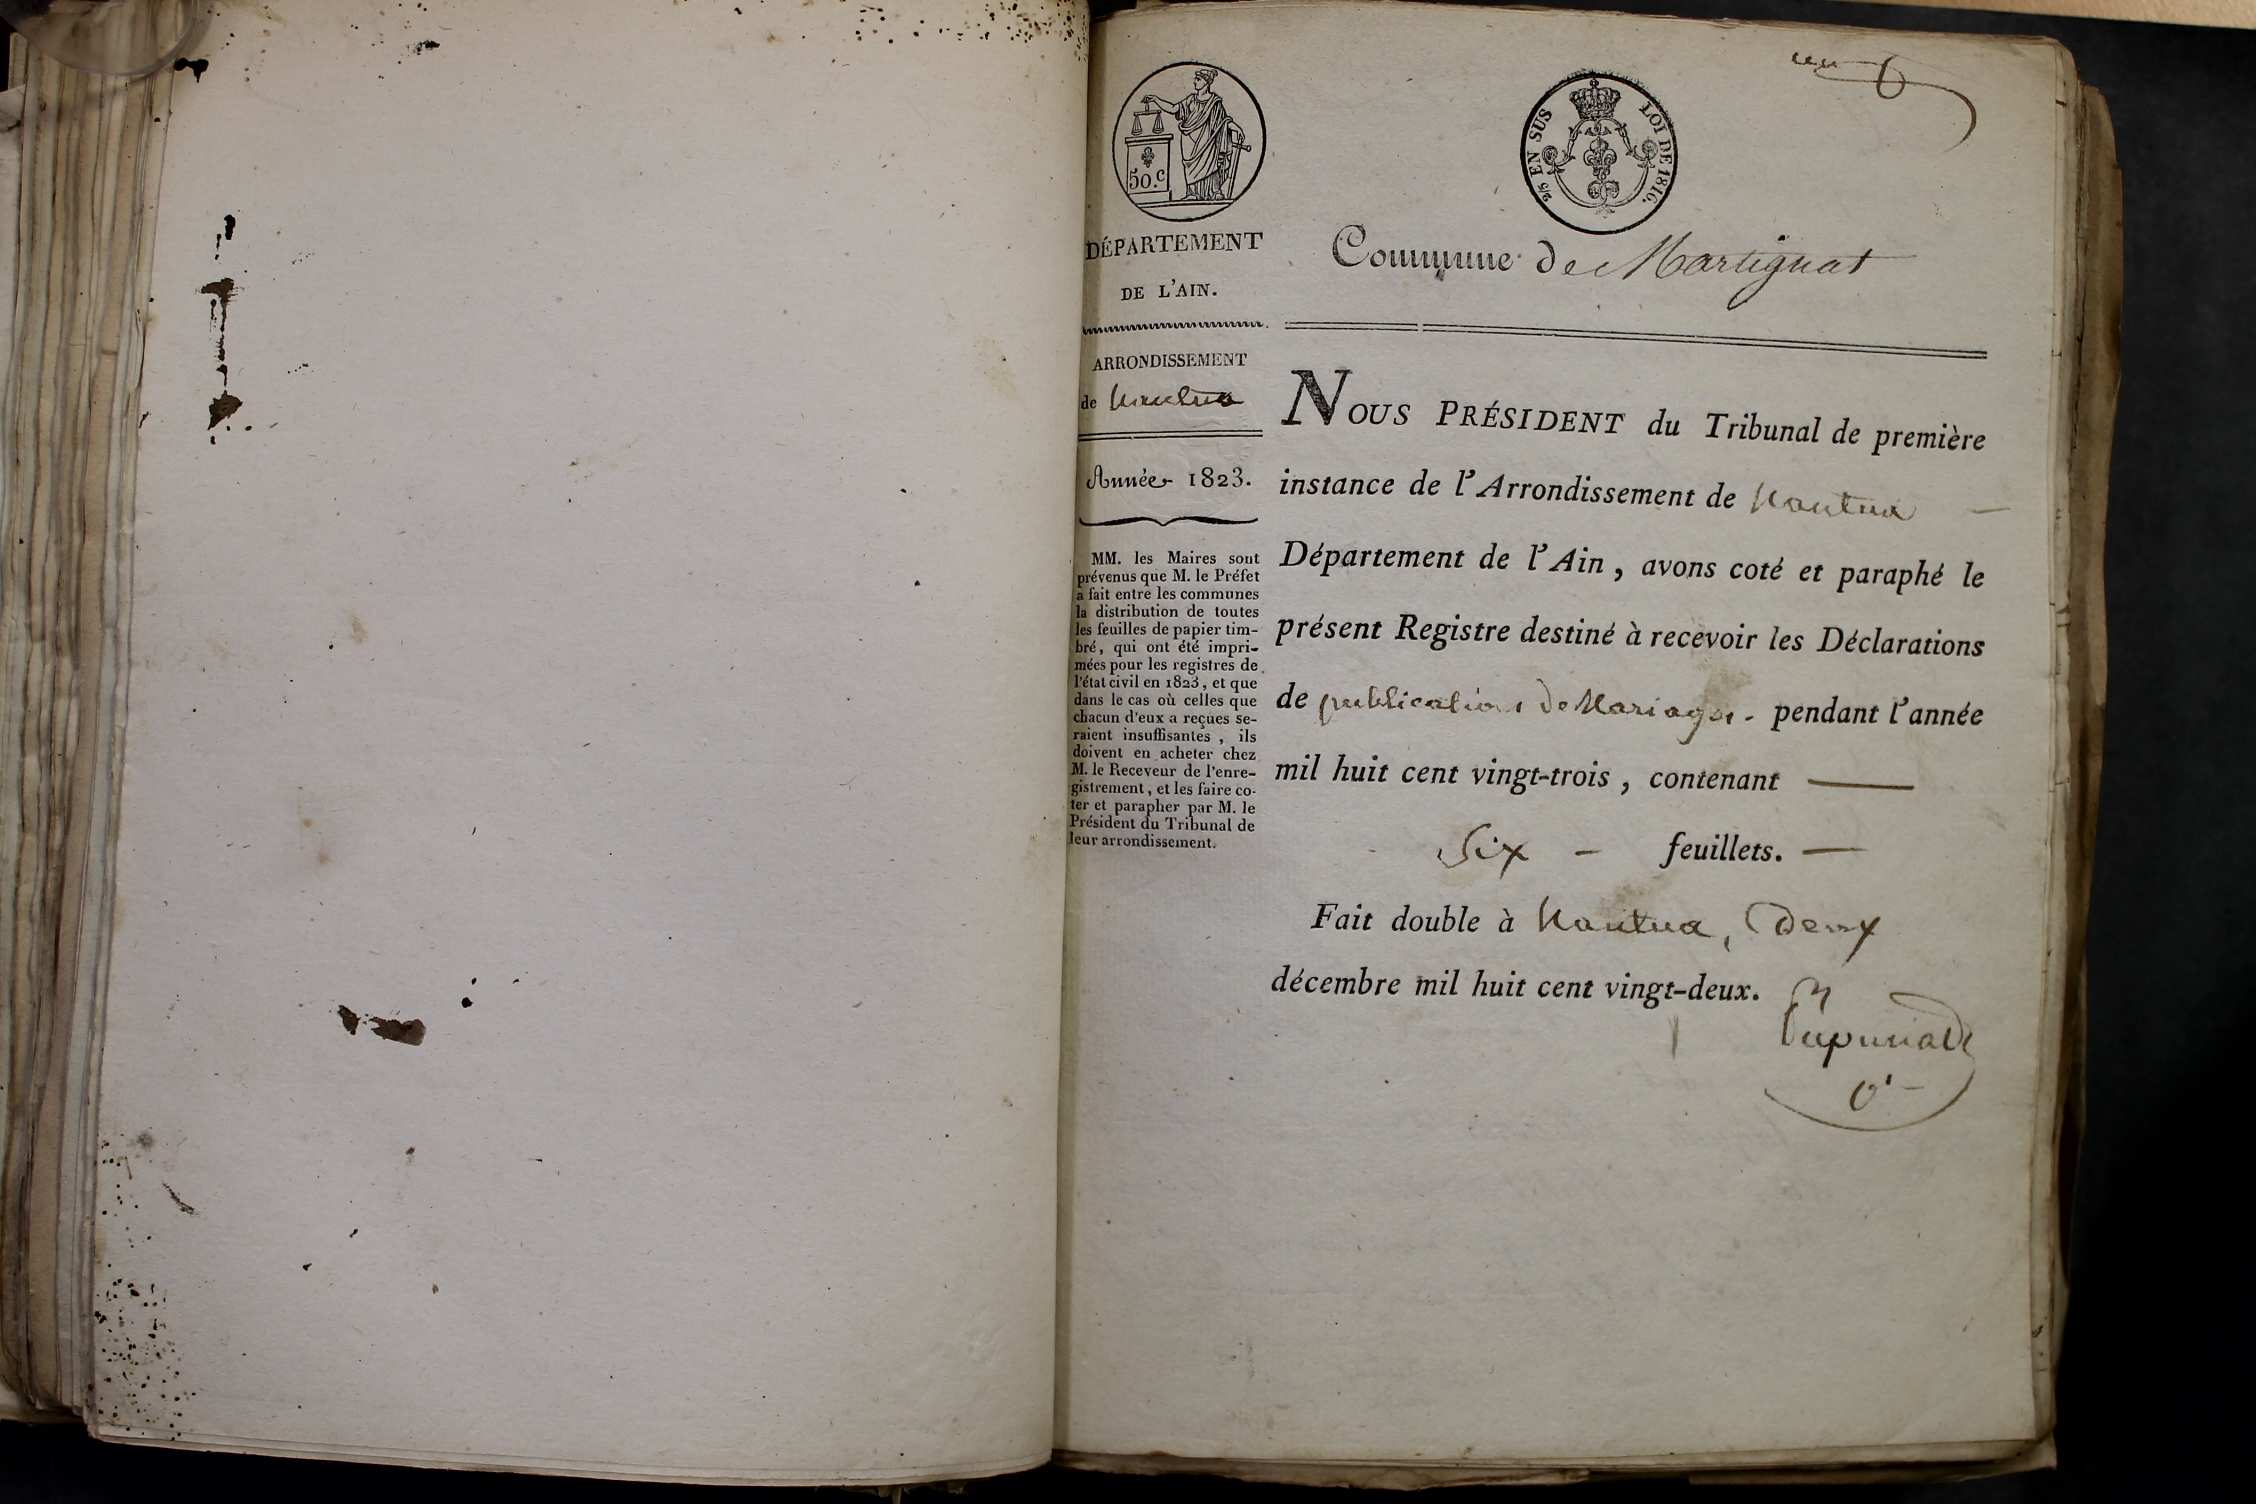 un
50.c
2/5 EN SUS LOI DE 1816.
DÉPARTEMENT
DE L'AIN.
Commune de Martignat
ARRONDISSEMENT
de Nantua
Année 1823.
MM. les Maires sont
prévenus que M. le Préfet
a fait entre les communes
la distribution de toutes
les feuilles de papier tim-
bré, qui ont été impri-
mées pour les registres de
l'état civil en 1823, et que
dans le cas où celles que
chacun d'eux a reçues se-
raient insuffisantes, ils
doivent en acheter chez
M. le Receveur de l'enre-
gistrement, et les faire co-
ter et parapher par M. le
Président du Tribunal de
leur arrondissement.
NOUS PRÉSIDENT du Tribunal de première
instance de l'Arrondissement de Nantua —
Département de l'Ain, avons coté et paraphé le
présent Registre destiné à recevoir les Déclarations
de publications de Mariages - pendant l'année
mil huit cent vingt-trois, contenant —
Six — feuillets. —
Fait double à Nantua, Deux
décembre mil huit cent vingt-deux.